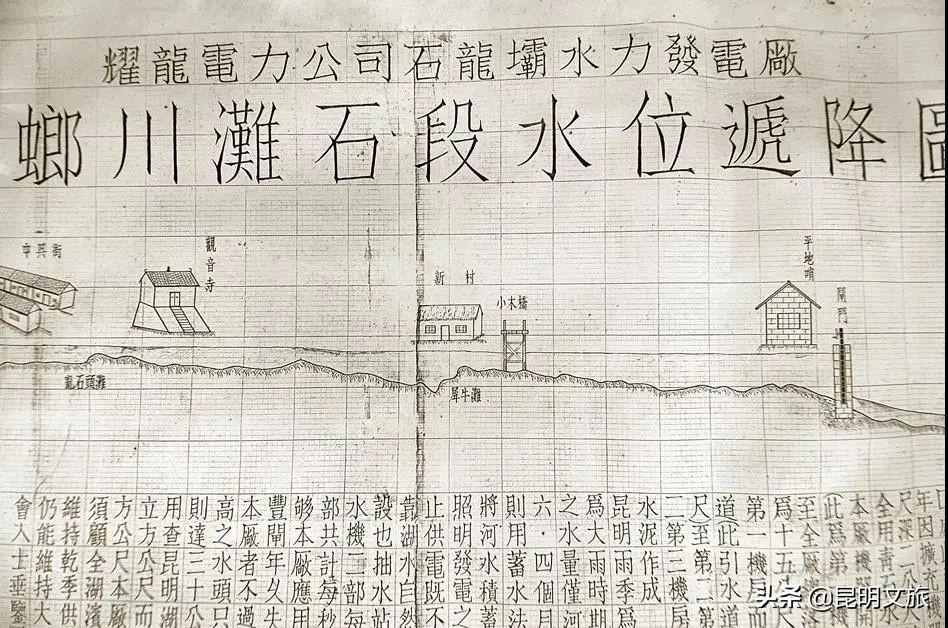 耀龍電力公司石龍壩水力發電厰
螂川灘石段水位遞降圖
中興街
觀音寺
新村
小木橋
平地哨
閘門
亂石頭灘
犀牛灘
年因擴充機
尺深二公
全用青石水
本廠機開
此爲第
至全廠
爲十五公尺
第一機房而
道(此引水道
尺)至第二第
二第三機房
水泥作成
昆明雨季爲
爲大雨時期
之水量僅河
六·四個月
則用蓄水法
將河水積蓄
照明發電之
止供電既不
靠湖水自然
設也抽水站
水機二部每
部共計每秒
够本厰應用
豐閘年久失
本厰者不過
高之水頭只
則達三十公
用查昆明湖
立方公尺而
方公尺本厰
須顧全湖濱
維持乾季供
仍能維持大
會入士垂鑒
头条 @昆明文旅